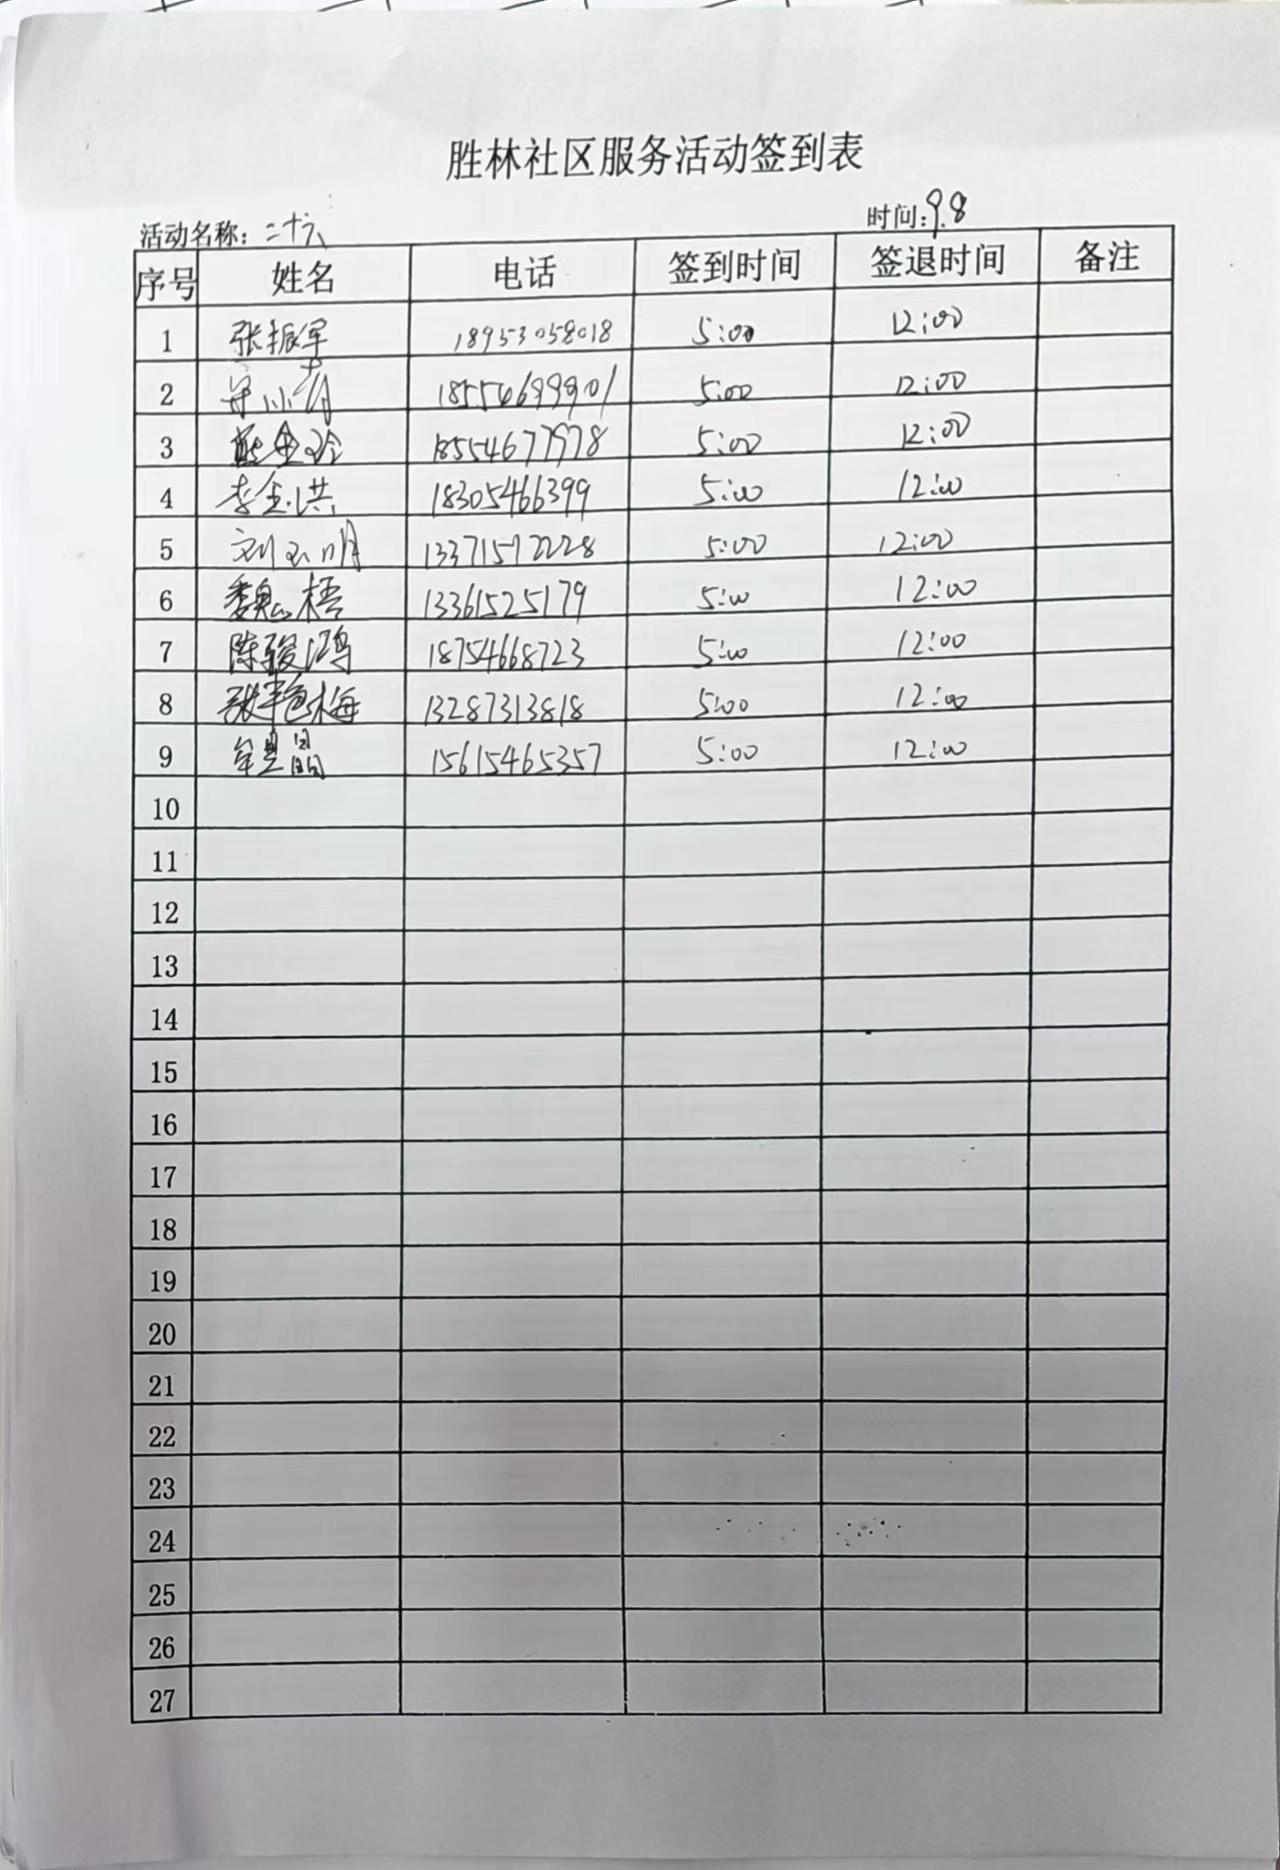 胜林社区服务活动签到表
活动名称：二十六 时间：9.8
序号 姓名 电话 签到时间 签退时间 备注
1 张振军 18953058018 5:00 12:00
2 18554699901 5:00 12:00
3 18554677978 5:00 12:00
4 李金洪 18305466399 5:00 12:00
5 刘玉明 13371572228 5:00 12:00
6 魏梧 13361525179 5:00 12:00
7 陈骏鸿 18754668723 5:00 12:00
8 张艳梅 13287313818 5:00 12:00
9 15615465357 5:00 12:00
10
11
12
13
14
15
16
17
18
19
20
21
22
23
24
25
26
27